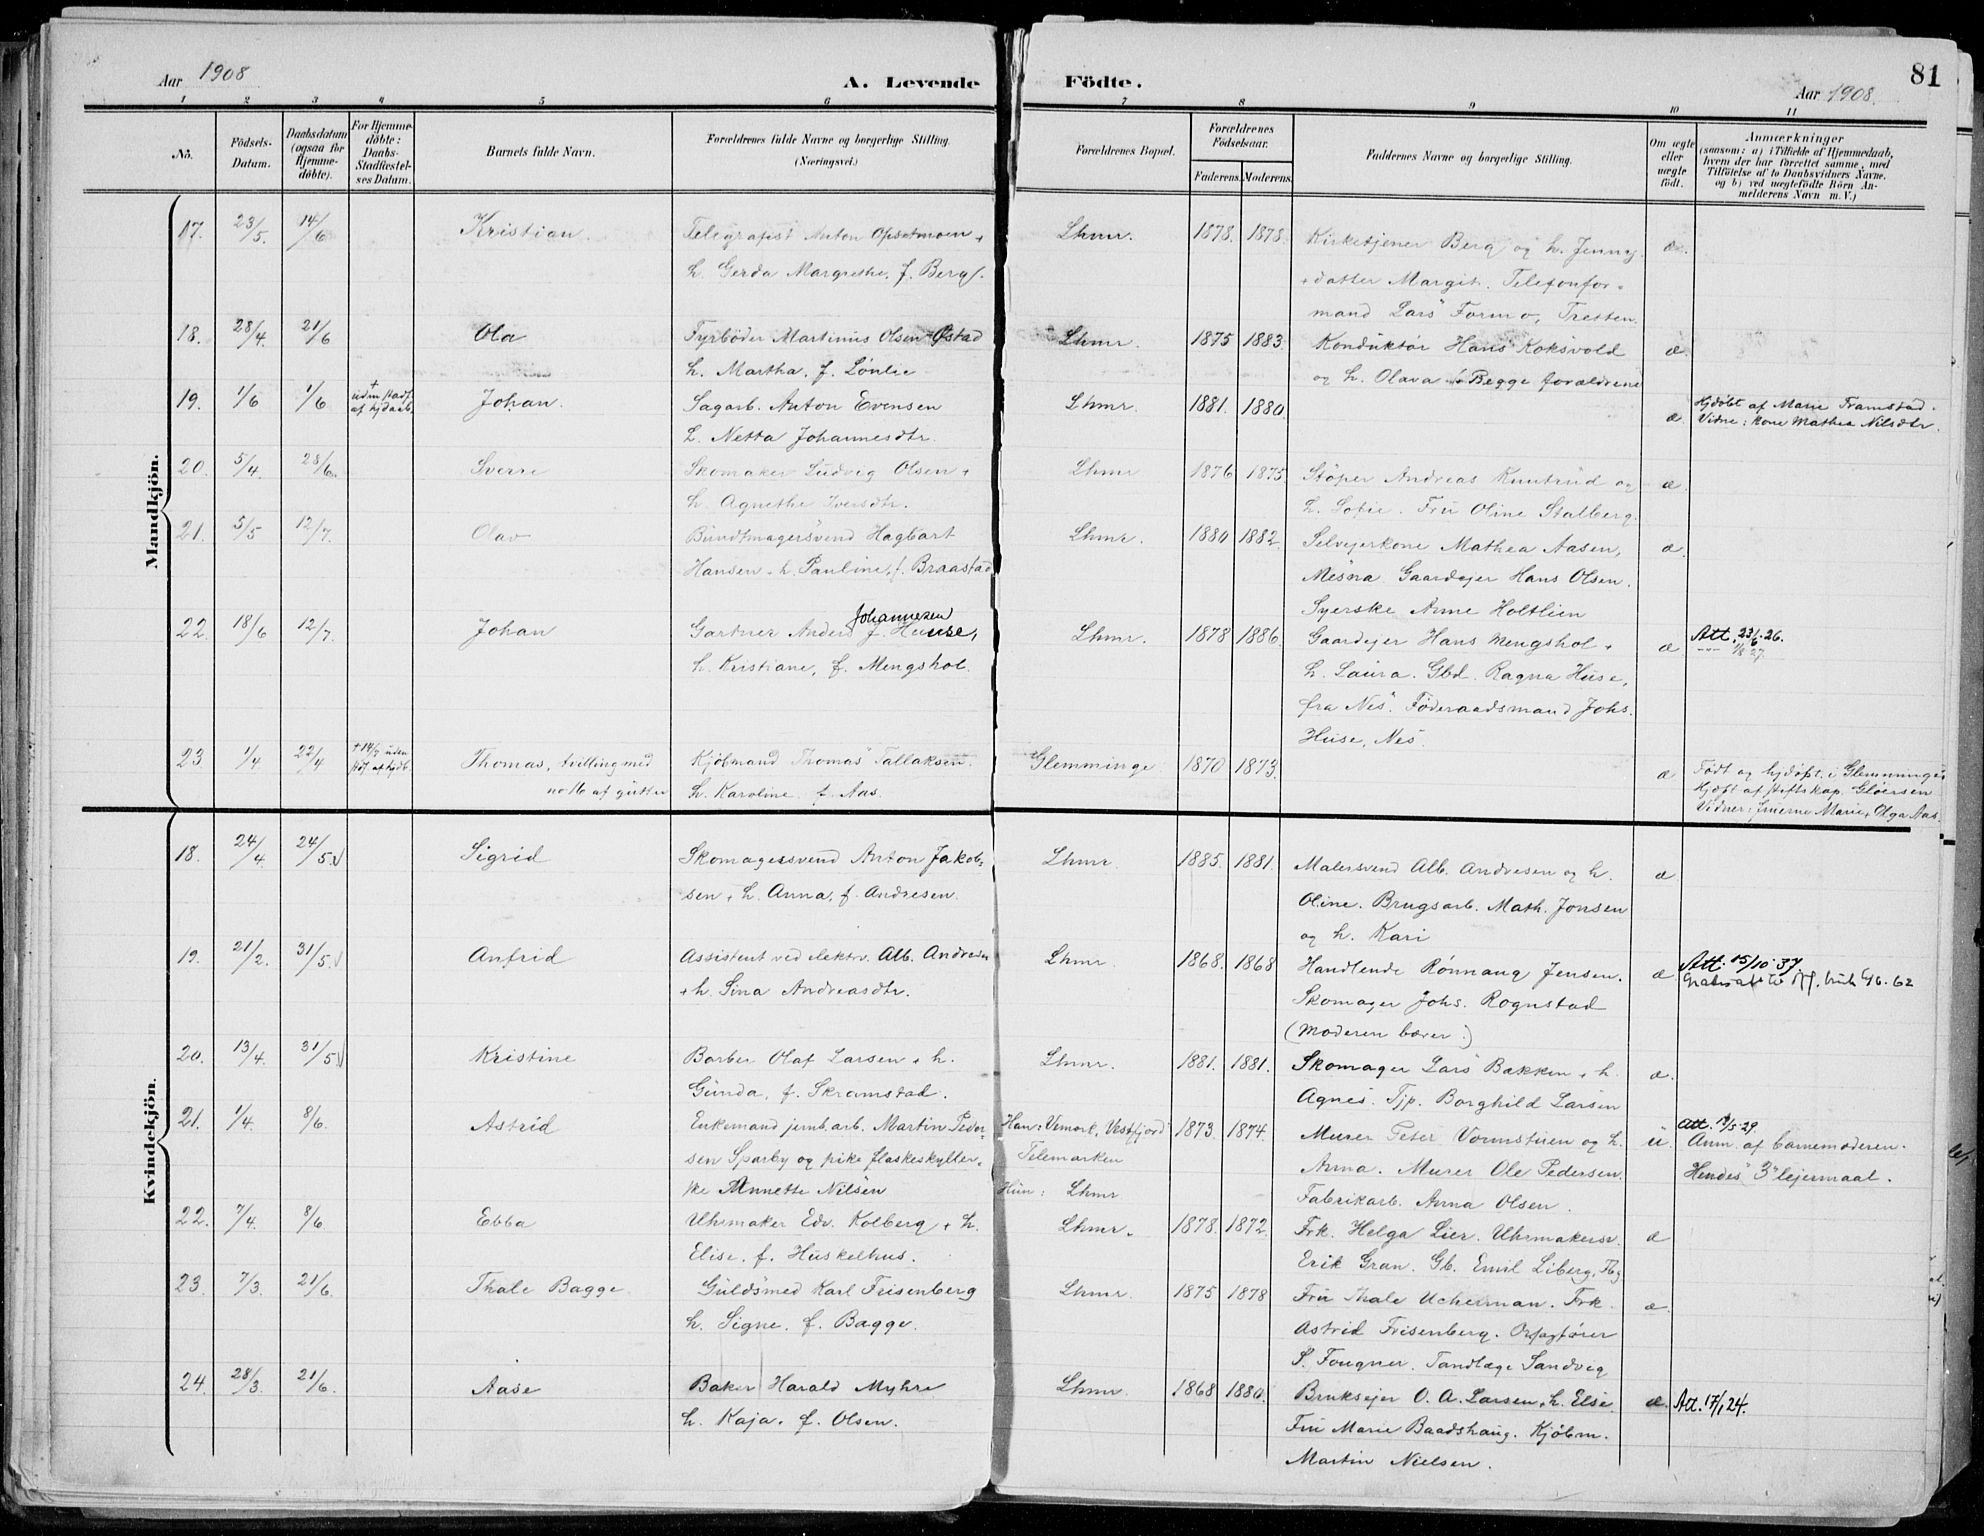 Aar 1908
A. Levende Födte.
Aar 1908.
81
1 2 3 4 5 6 7 8 9 10 11
Nô.
Födsels-Datum.
Daabsdatum (ogsaa for Hjemme-döbte).
For Hjemme-döbte: Daabs-Stadfæstel-ses Datum.
Barnets fulde Navn.
Forældrenes fulde Navne og borgerlige Stilling. (Næringsvei.)
Forældrenes Bopæl.
Forældrenes Födselsaar.
Faderens. Moderens.
Faddernes Navne og borgerlige Stilling.
Om ægte eller uægte födt.
Anmærkninger (saasom: a) i Tilfælde af Hjemmedaab, hvem der har forrettet samme, med Tilföielse af to Daabsvidners Navne. og b) ved uægtefödte Börn An-melderens Navn m. V.)
Mandkjön.
17. 23/5. 14/6 Kristian. Telegrafist Anton Opsetmoen + Lhmr. 1878. 1878. Kirketjener Berg og h. Jenny æ.
h. Gerda Margrethe, f. Berg. + datter Margit. Telefonfor-
mand Lars Formo, Tretten.
18. 28/4. 21/6 Ola Fyrbøder Martinius Olsen Østad Lhmr. 1875 1883. Konduktør Hans Koksvold æ.
h. Martha, f. Lønlie og h. Olava. Begge forældrene
19. 1/6 1/6 + uden stadf. af hjdaab Johan. Sagarb. Anton Evensen Lhmr. 1881. 1880. æ Hjdøbt af Marie Framstad.
h. Netta Johannesdtr. Vidne: kone Mathea Nilsdtr.
20. 5/4. 28/6. Sverre Skomaker Ludvig Olsen + Lhmr 1876 1875 Støper Andreas Knutrud og æ.
h. Agnethe Iversdtr. h. Sofie. Fru Oline Stalberg.
21. 5/5 12/7. Olav Bundtmagersvend Hagbart Lhmr. 1880 1882. Selvejerkone Mathea Aasen, æ.
Hansen + h. Pauline, f. Braastad Mesna. Gaardejer Hans Olsen.
Syerske Anne Holtlien
22. 18/6 12/7. Johan Gartner Anders J. Huuse, Johannesen Lhmr. 1878 1886. Gaardejer Hans Mengshol + æ Att. 23/6.26.
h. Kristiane, f. Mengshol. h. Laura. Gbd. Ragna Huse,
fra Nes. Føderaadsmand Johs.
Huse, Nes.
23 1/4 22/4 + 14/7 uden stdf. af hjdb. Thomas, tvilling med Kjøbmand Thomas Tallaksen. Glemminge 1870 1873. æ Født og hjdøpt. i Glemminge
no 16 af gutter h. Karoline f. Aas. Hjdpt af stiftskap. Gløersen
Vidner: fruerne Marie + Olga Aas.
Kvindekjön.
18. 24/4 24/5 Sigrid Skomagersvend Anton Jakob- Lhmr. 1885. 1881. Malersvend Alb. Andresen og h. æ
sen + h. Anna, f. Andresen. Oline. Brugsarb. Math. Jonsen
og h. Kari
19. 21/2. 31/5. Anfrid Assistent ved elektrv. Alb. Andresen Lhmr. 1868. 1868 Handlende Rønnaug Jensen. æ Att. 15/10.37
+ h. Sina Andreasdtr. Skomager Johs. Rognstad
(Moderen bærer.)
20. 13/4. 31/5 Kristine Barber Olaf Larsen + h. Lhmr. 1881. 1881. Skomager Lars Bakken + h æ.
Gunda, f. Skramstad. Agnes. Tjp. Borghild Larsen
21. 1/4. 8/6. Astrid Enkemand jernb.arb. Martin Peder- Han: Vemork, Vestfjord 1873. 1874. Murer Peter Vormstuen og h. u. Anm af barnemoderen.
sen Sparby og pike flaskeskyller- Telemarken Anna. Murer Ole Pedersen. Hendes 3" lejermaal.
ske Annette Nilsen Hun: Lhmr Fabrikarb. Anna Olsen.
22. 7/4. 8/6. Ebba Uhrmaker Edv. Kolberg + h. Lhmr. 1878. 1872. Frk. Helga Lier. Uhrmakersv. æ
Elise, f. Huskelhus. Erik Gran. Gb. Emil Liberg,
23. 7/3. 21/6. Thale Bagge. Guldsmed Karl Frisenberg Lhmr. 1875 1878 Fru Thale Ucherman. Frk. æ.
h. Signe, f. Bagge. Astrid Frisenberg.
S. Fougner. Tandlæge Sandvig
24. 28/3. 21/6. Aase Baker Harald Myhre Lhmr. 1868 1880. Bruksejer O. A. Larsen + h. Else. æ. Att. 17/1 24.
h. Kaja. f. Olsen. Fru Marie Baadshaug. Kjøbm.
Martin Nielsen.